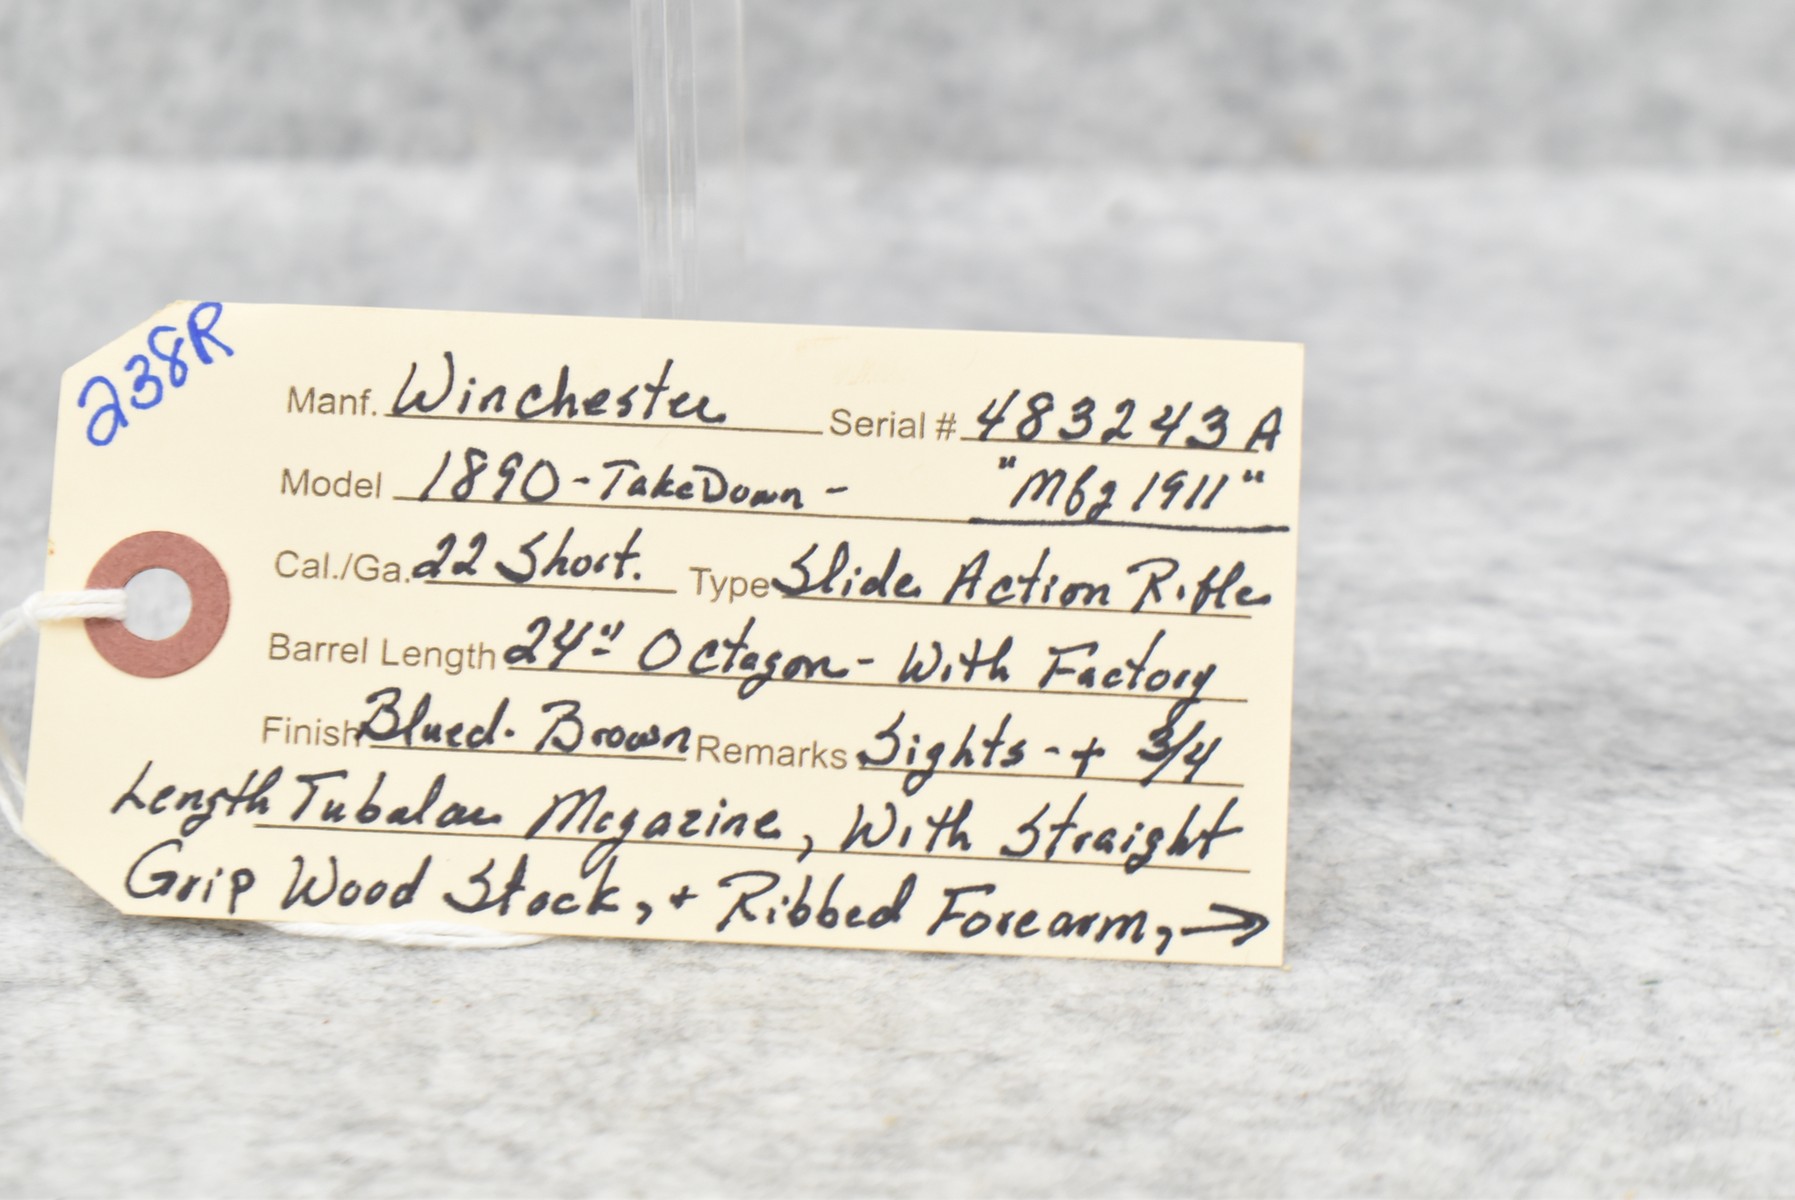 238R
Manf. Winchester Serial # 483243A
Model 1890 - TakeDown - "Mfg 1911"
Cal./Ga. 22 Short. Type Slide Action Rifle
Barrel Length 24" Octagon - With Factory
Finish Blued. Brown Remarks Sights - + 3/4
Length Tubular Magazine, With Straight
Grip Wood Stock, + Ribbed Forearm, →